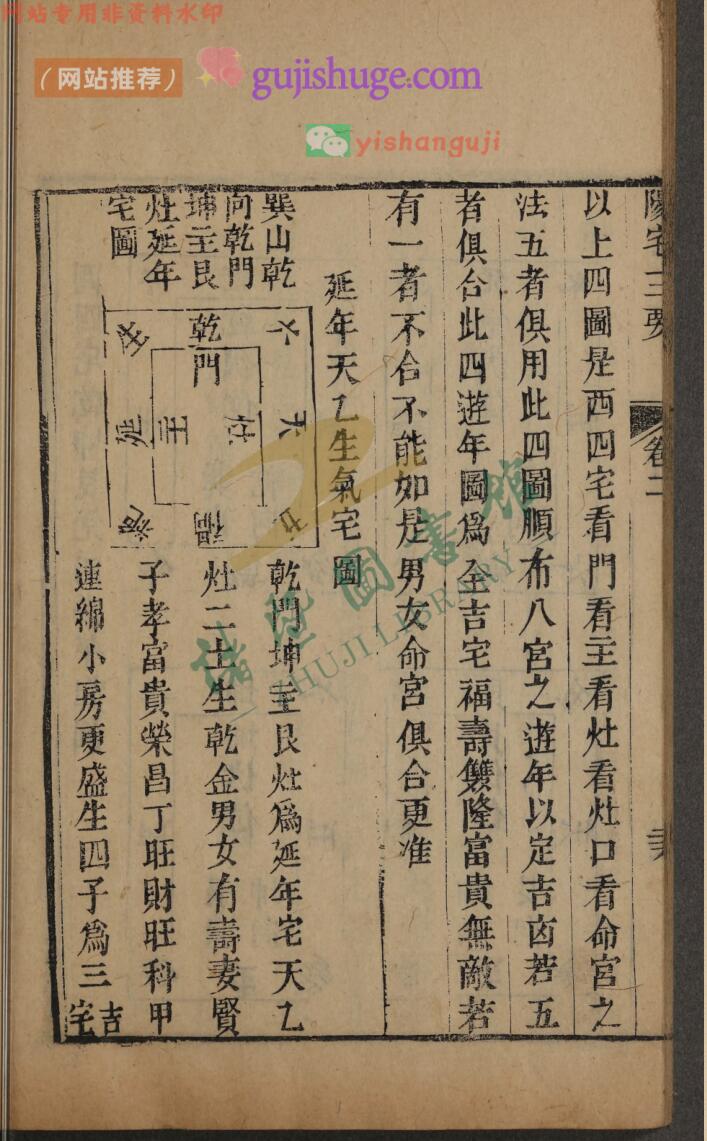 网站专用非资料水印
（网站推荐）
gujishuge.com
yishanguji
陽宅三要
卷二
以上四圖是西四宅看門看主看灶看灶口看命宮之
法五者俱用此四圖順布八宮之遊年以定吉凶若五
者俱合此四遊年圖為全吉宅福壽雙隆富貴無敵若
有一者不合不能如是男女命宮俱合更准
延年天乙生氣宅圖
巽山乾
向乾門
坤主艮
灶延年
宅圖
乾
門
六
天
灶
主
延
禍
乾門坤主艮灶為延年宅天乙
灶二土生乾金男女有壽妻賢
子孝富貴榮昌丁旺財旺科甲
連綿小房更盛生四子為三吉宅
諸暨圖書館
ZHUJI LIBRARY